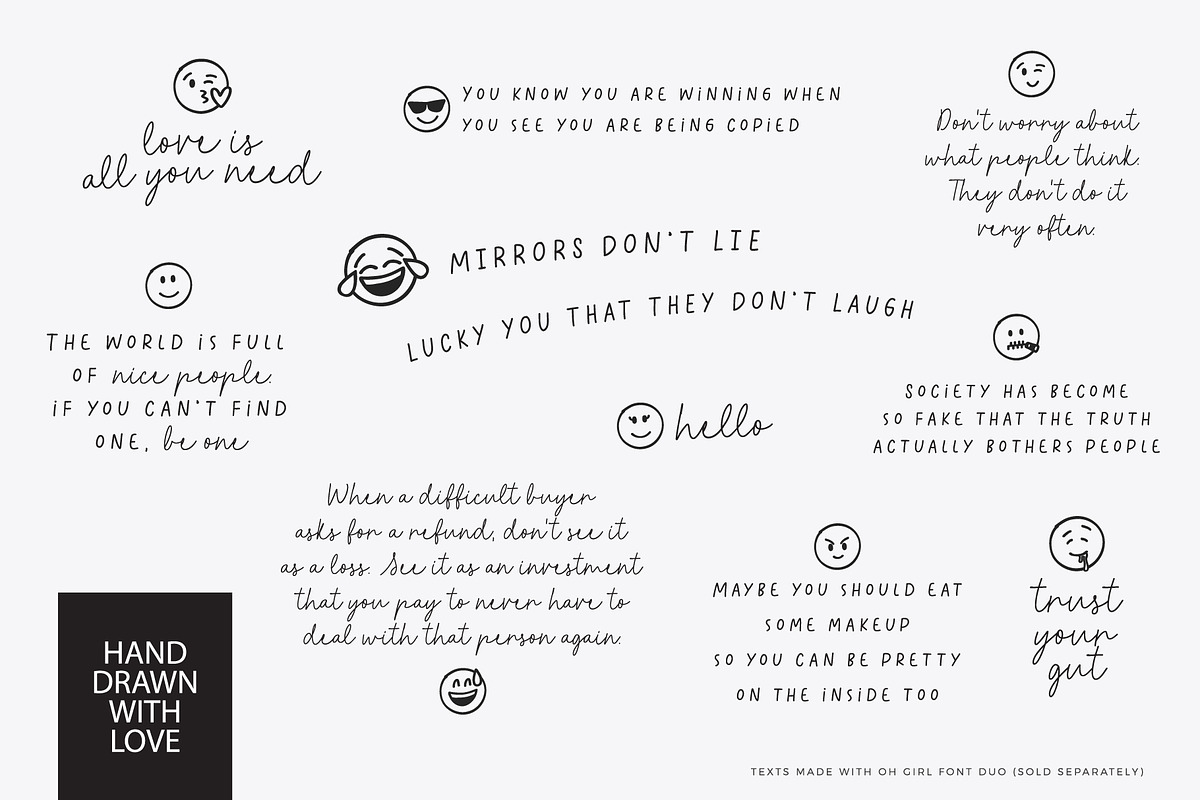 love is
all you need
YOU KNOW YOU ARE WiNNiNG WHEN
YOU SEE YOU ARE BEiNG COPiED
Don't worry about
what people think.
They don't do it
very often.
MIRRORS DON'T LIE
LUCKY YOU THAT THEY DON'T LAUGH
THE WORLD iS FULL
OF nice people.
iF YOU CAN'T FiND
ONE, be one
hello
SOCiETY HAS BECOME
SO FAKE THAT THE TRUTH
ACTUALLY BOTHERS PEOPLE
When a difficult buyer
asks for a refund, don't see it
as a loss. See it as an investment
that you pay to never have to
deal with that person again.
MAYBE YOU SHOULD EAT
SOME MAKEUP
SO YOU CAN BE PRETTY
ON THE iNSiDE TOO
trust
your
gut
HAND
DRAWN
WITH
LOVE
TEXTS MADE WITH OH GIRL FONT DUO (SOLD SEPARATELY)